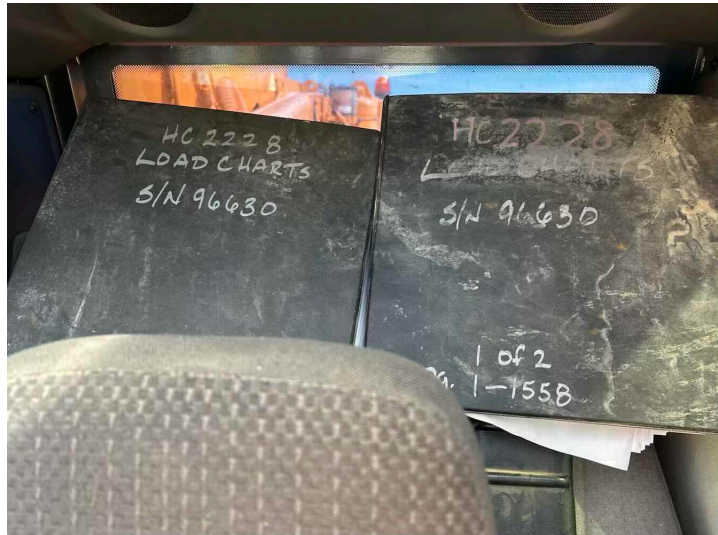 HC 2228
LOAD CHARTS
S/N 96630
HC 2228
LOAD CHARTS
S/N 96630
1 of 2
Pg. 1-1558